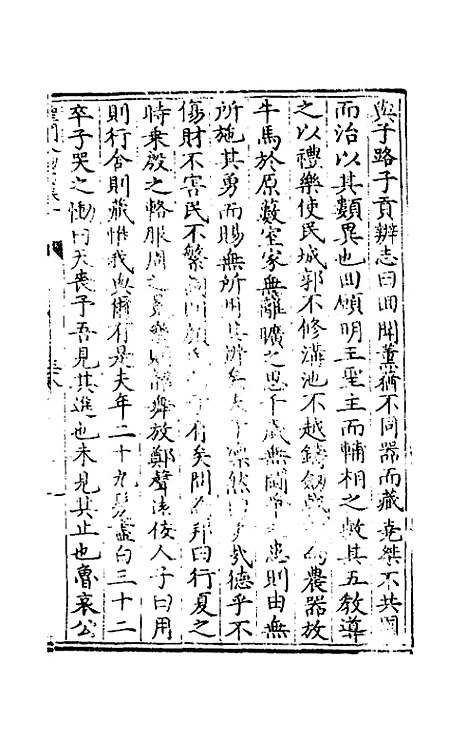 與子路子貢辨志曰回聞薰蕕不同器而藏堯桀不共國
而治以其類異也回願明王聖主而輔相之敷其五教導
之以禮樂使民城郭不修溝池不越鑄劍戟農器放
牛馬於原藪室家無離曠之思千歲無鬭患則由無
所施其勇而賜無所用其辨矣夫子凜然曰美哉德乎不
傷財不害民不繁有矣問為邦曰行夏之
時乗殷之輅服周之冕樂則韶舞放鄭聲遠佞人子曰用
則行舍則藏惟我與爾有是夫年二十九髮盡白三十二
卒子哭之慟曰天喪予吾見其進也未見其止也魯哀公